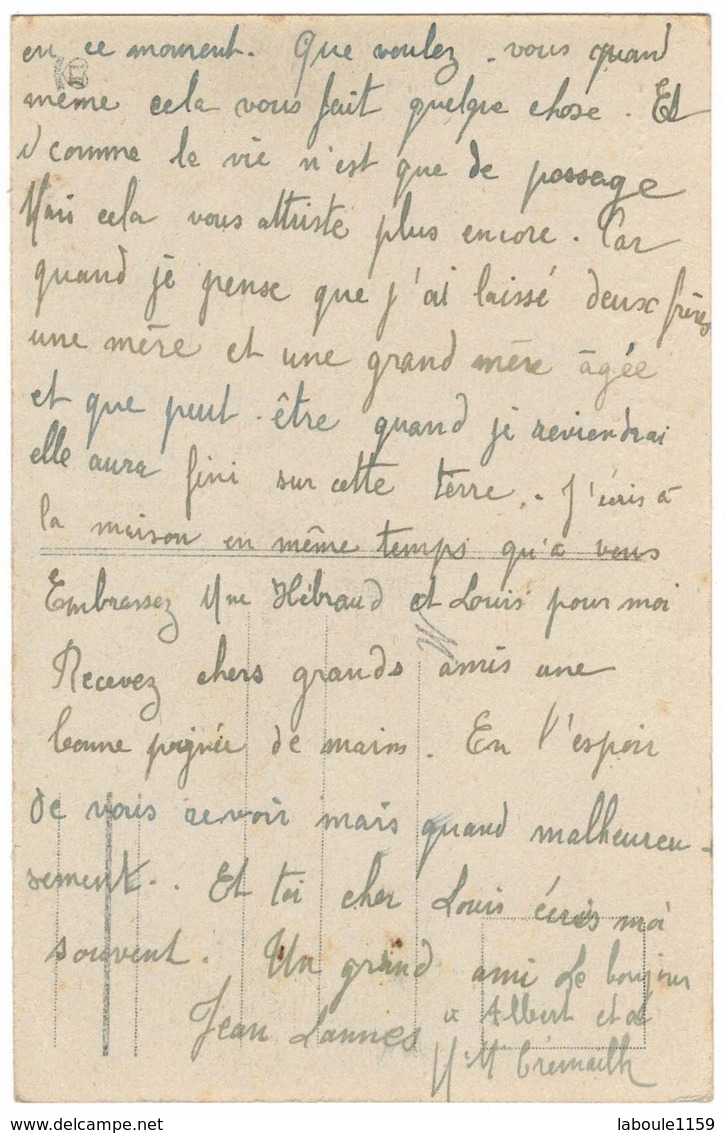 en ce moment. Que voulez-vous quand
même cela vous fait quelque chose. Et
comme la vie n'est que de passage
Mais cela vous attriste plus encore. Car
quand je pense que j'ai laissé deux frères
une mère et une grand mère âgée
et que peut-être quand je reviendrai
elle aura fini sur cette terre. J'écris à
la maison en même temps qu'à vous
Embrassez Mme Hébraud et Louis pour moi
Recevez chers grands amis une
bonne poignée de mains. En l'espoir
de vous revoir mais quand malheureu-
sement.. Et toi cher Louis écris moi
souvent. Un grand ami Le bonjour
Jean Lannes à Albert et à
Mr Mme Crémailh
laboule1159